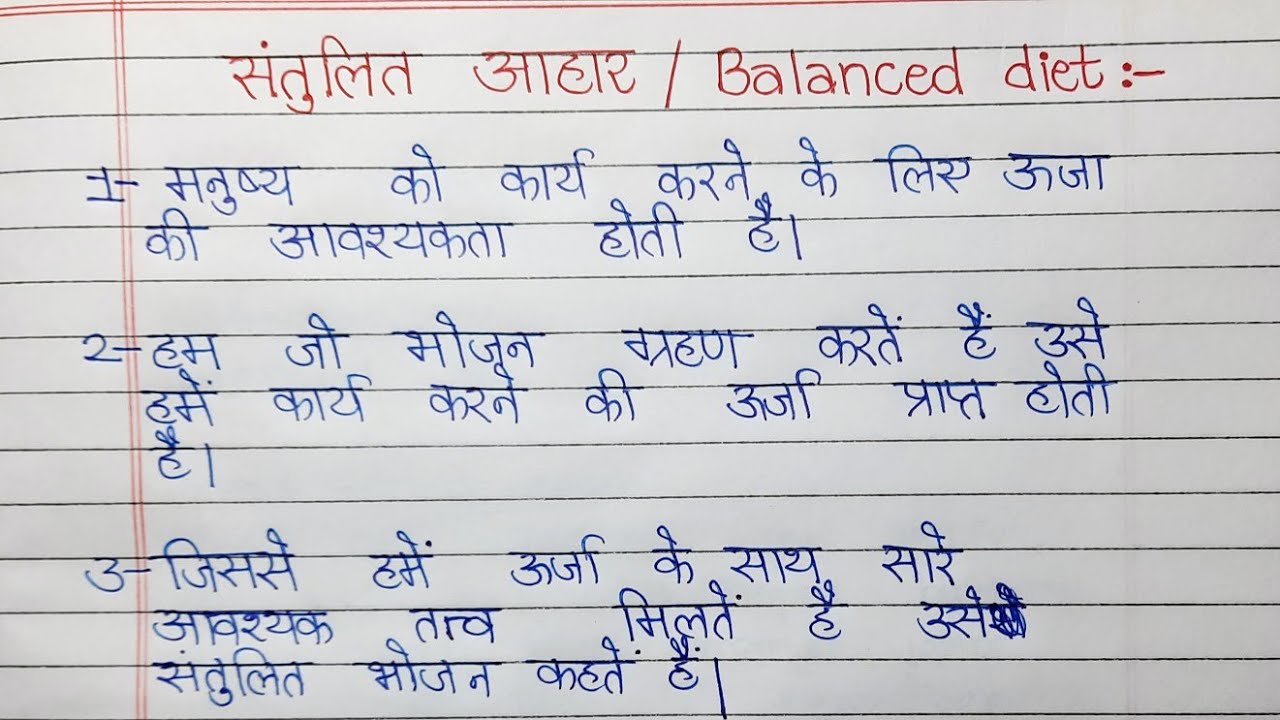 संतुलित आहार / Balanced diet :-
1- मनुष्य को कार्य करने के लिए ऊजा
की आवश्यकता होती है।
2- हम जो भोजन ग्रहण करतें हैं उसे
हमें कार्य करने की ऊर्जा प्राप्त होती
है।
3- जिससे हमें ऊर्जा के साथ सारे
आवश्यक तत्व मिलतें है उसे
संतुलित भोजन कहतें हैं।